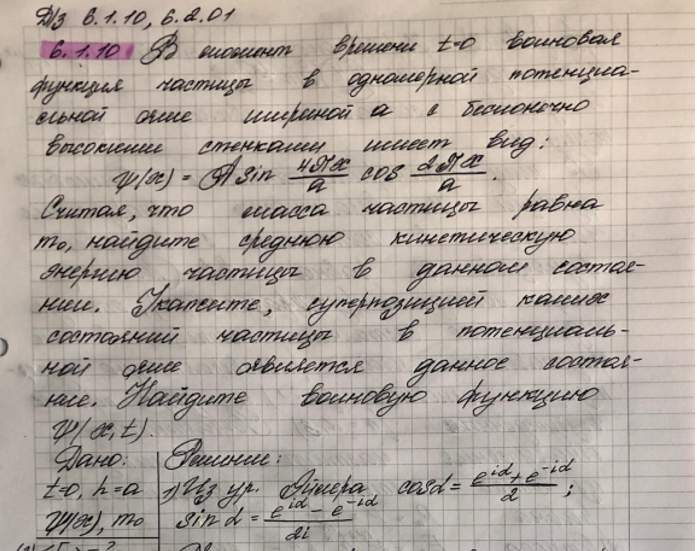 Д/з 6.1.10, 6.2.01
6.1.10 В момент времени t=0 волновая
функция частицы в одномерной потенциа-
льной яме шириной a с бесконечно
высокими стенками имеет вид:
Ψ(x) = A sin 4πx/a cos 2πx/a .
Считая, что масса частицы равна
m₀, найдите среднюю кинетическую
энергию частицы в данном состоя-
нии. Укажите, суперпозицией каких
состояний частицы в потенциаль-
ной яме является данное состоя-
ние. Найдите волновую функцию
Ψ(x,t).
Дано: Решение:
t=0, h=a 1) Из ур. Эйлера cosα = (e^iα + e^-iα)/2 ;
Ψ(x), m₀ sin α = (e^iα - e^-iα)/2i